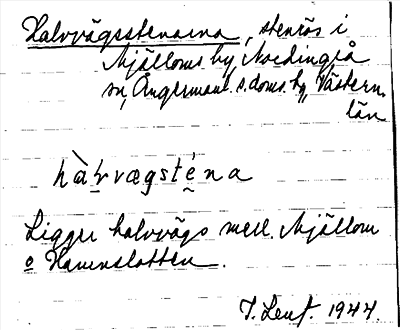 Halvvägsstenarna, stenrös i
Mjälloms by, Nordingrå
sn, Ångermanl. s. doms. hg, Västern.
län
hàḷvægsténa
Ligger halvvägs mell. Mjällom
o Hamnslotten.
1944.